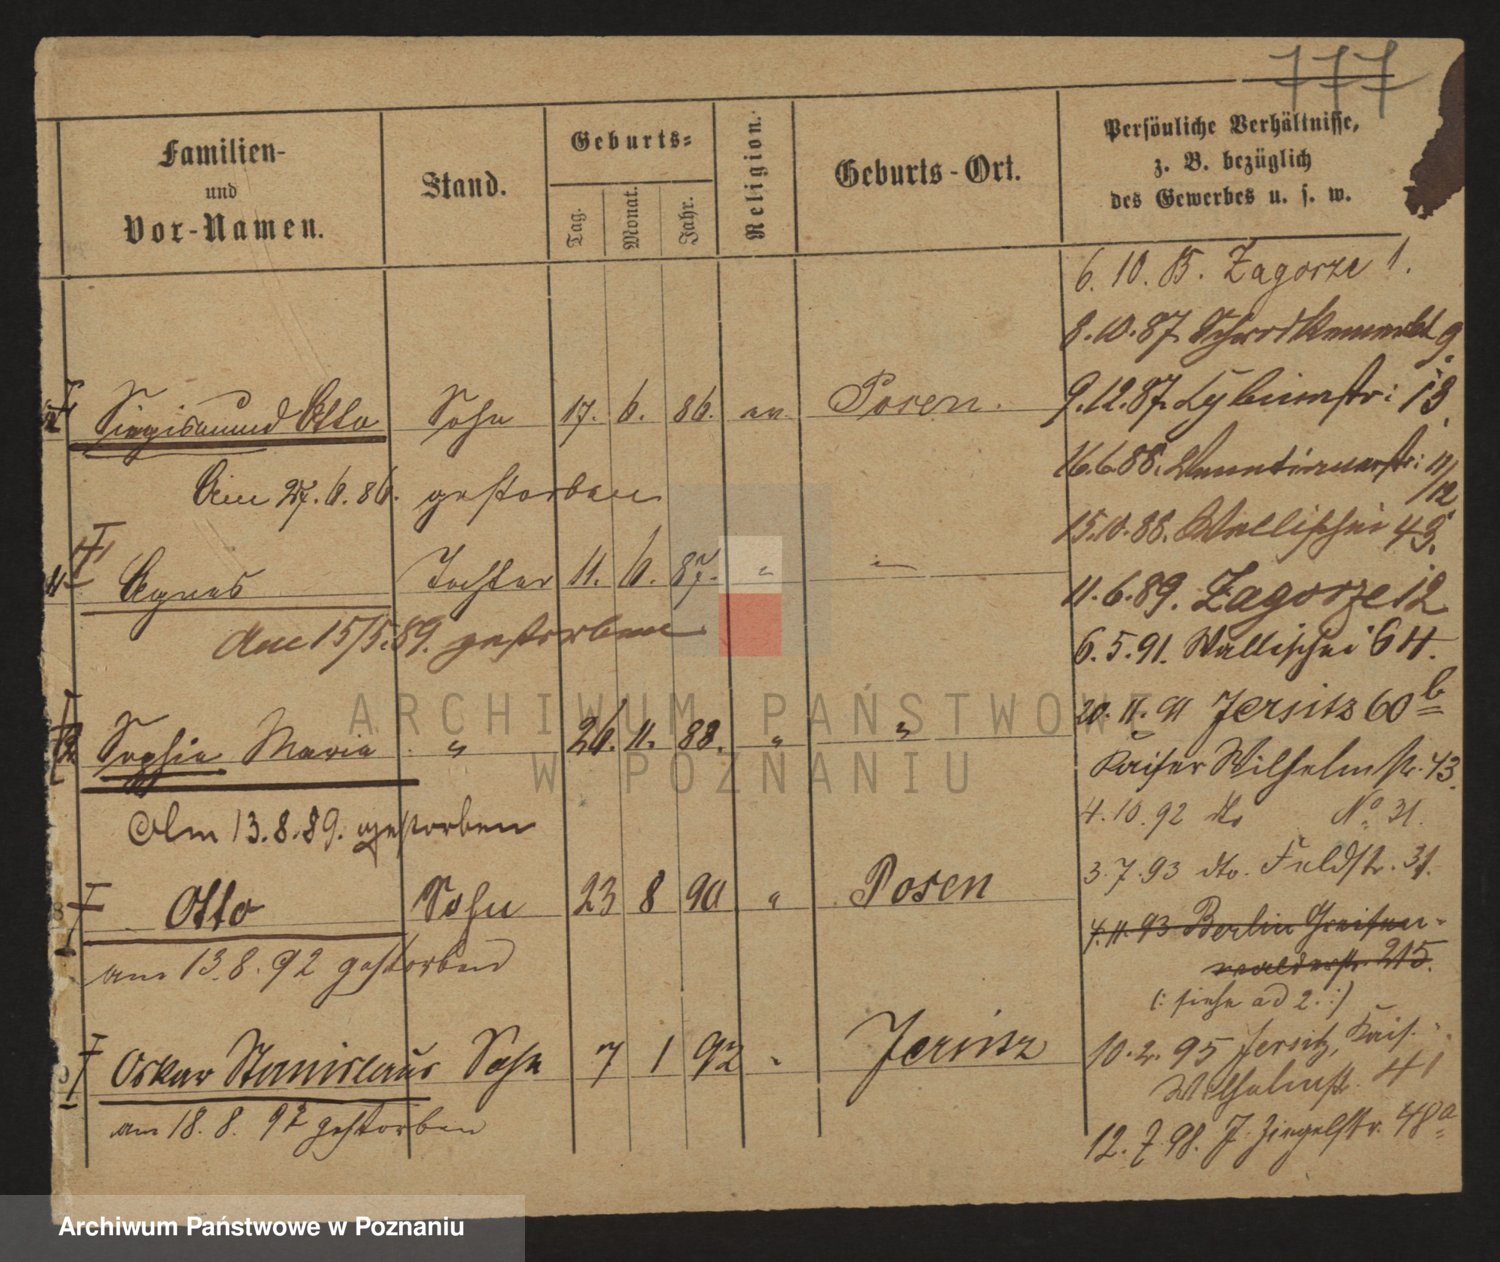 777
Familien-
und
Vor-Namen.
Stand.
Geburts-
Tag.
Monat.
Jahr.
Religion.
Geburts-Ort.
Persönliche Verhältnisse,
z. B. bezüglich
des Gewerbes u. s. w.
6. 10. 85. Zagorze 1.
8. 10. 87.
Siegismund Otto Sohn 17. 6. 86. ev. Posen.
9. 12. 87. 13.
Am 27. 6. 86. gestorben
16. 6. 88. 11/12
15. 10. 88. Wallischei 49.
Agnes Tochter 11. 6. 87. " "
11. 6. 89. Zagorze 12
Am 15/5. 89. gestorben
6. 5. 91. Wallischei 64.
20. 11. 91 Jersitz 60b
Sophie Maria " 26. 11. 88. " "
Kaiser Wilhelmstr. 43.
Am 13. 8. 89. gestorben
4. 10. 92 do No 31.
3. 7. 93 dto. Feldstr. 31.
Otto Sohn 23 8 90 " Posen
7. 11. 93 Berlin Greifen-
walderstr. 215.
am 13. 8. 92 gestorben
(: siehe ad 2. :)
Oskar Stanislaus Sohn 7 1 92 " Jersitz
10. 2. 95 Jersitz, Kais.
Wilhelmstr. 41
am 18. 8. 92 gestorben
12. 7. 98. J. Ziegelstr. 48a
ARCHIWUM PAŃSTWOWE
W POZNANIU
Archiwum Państwowe w Poznaniu